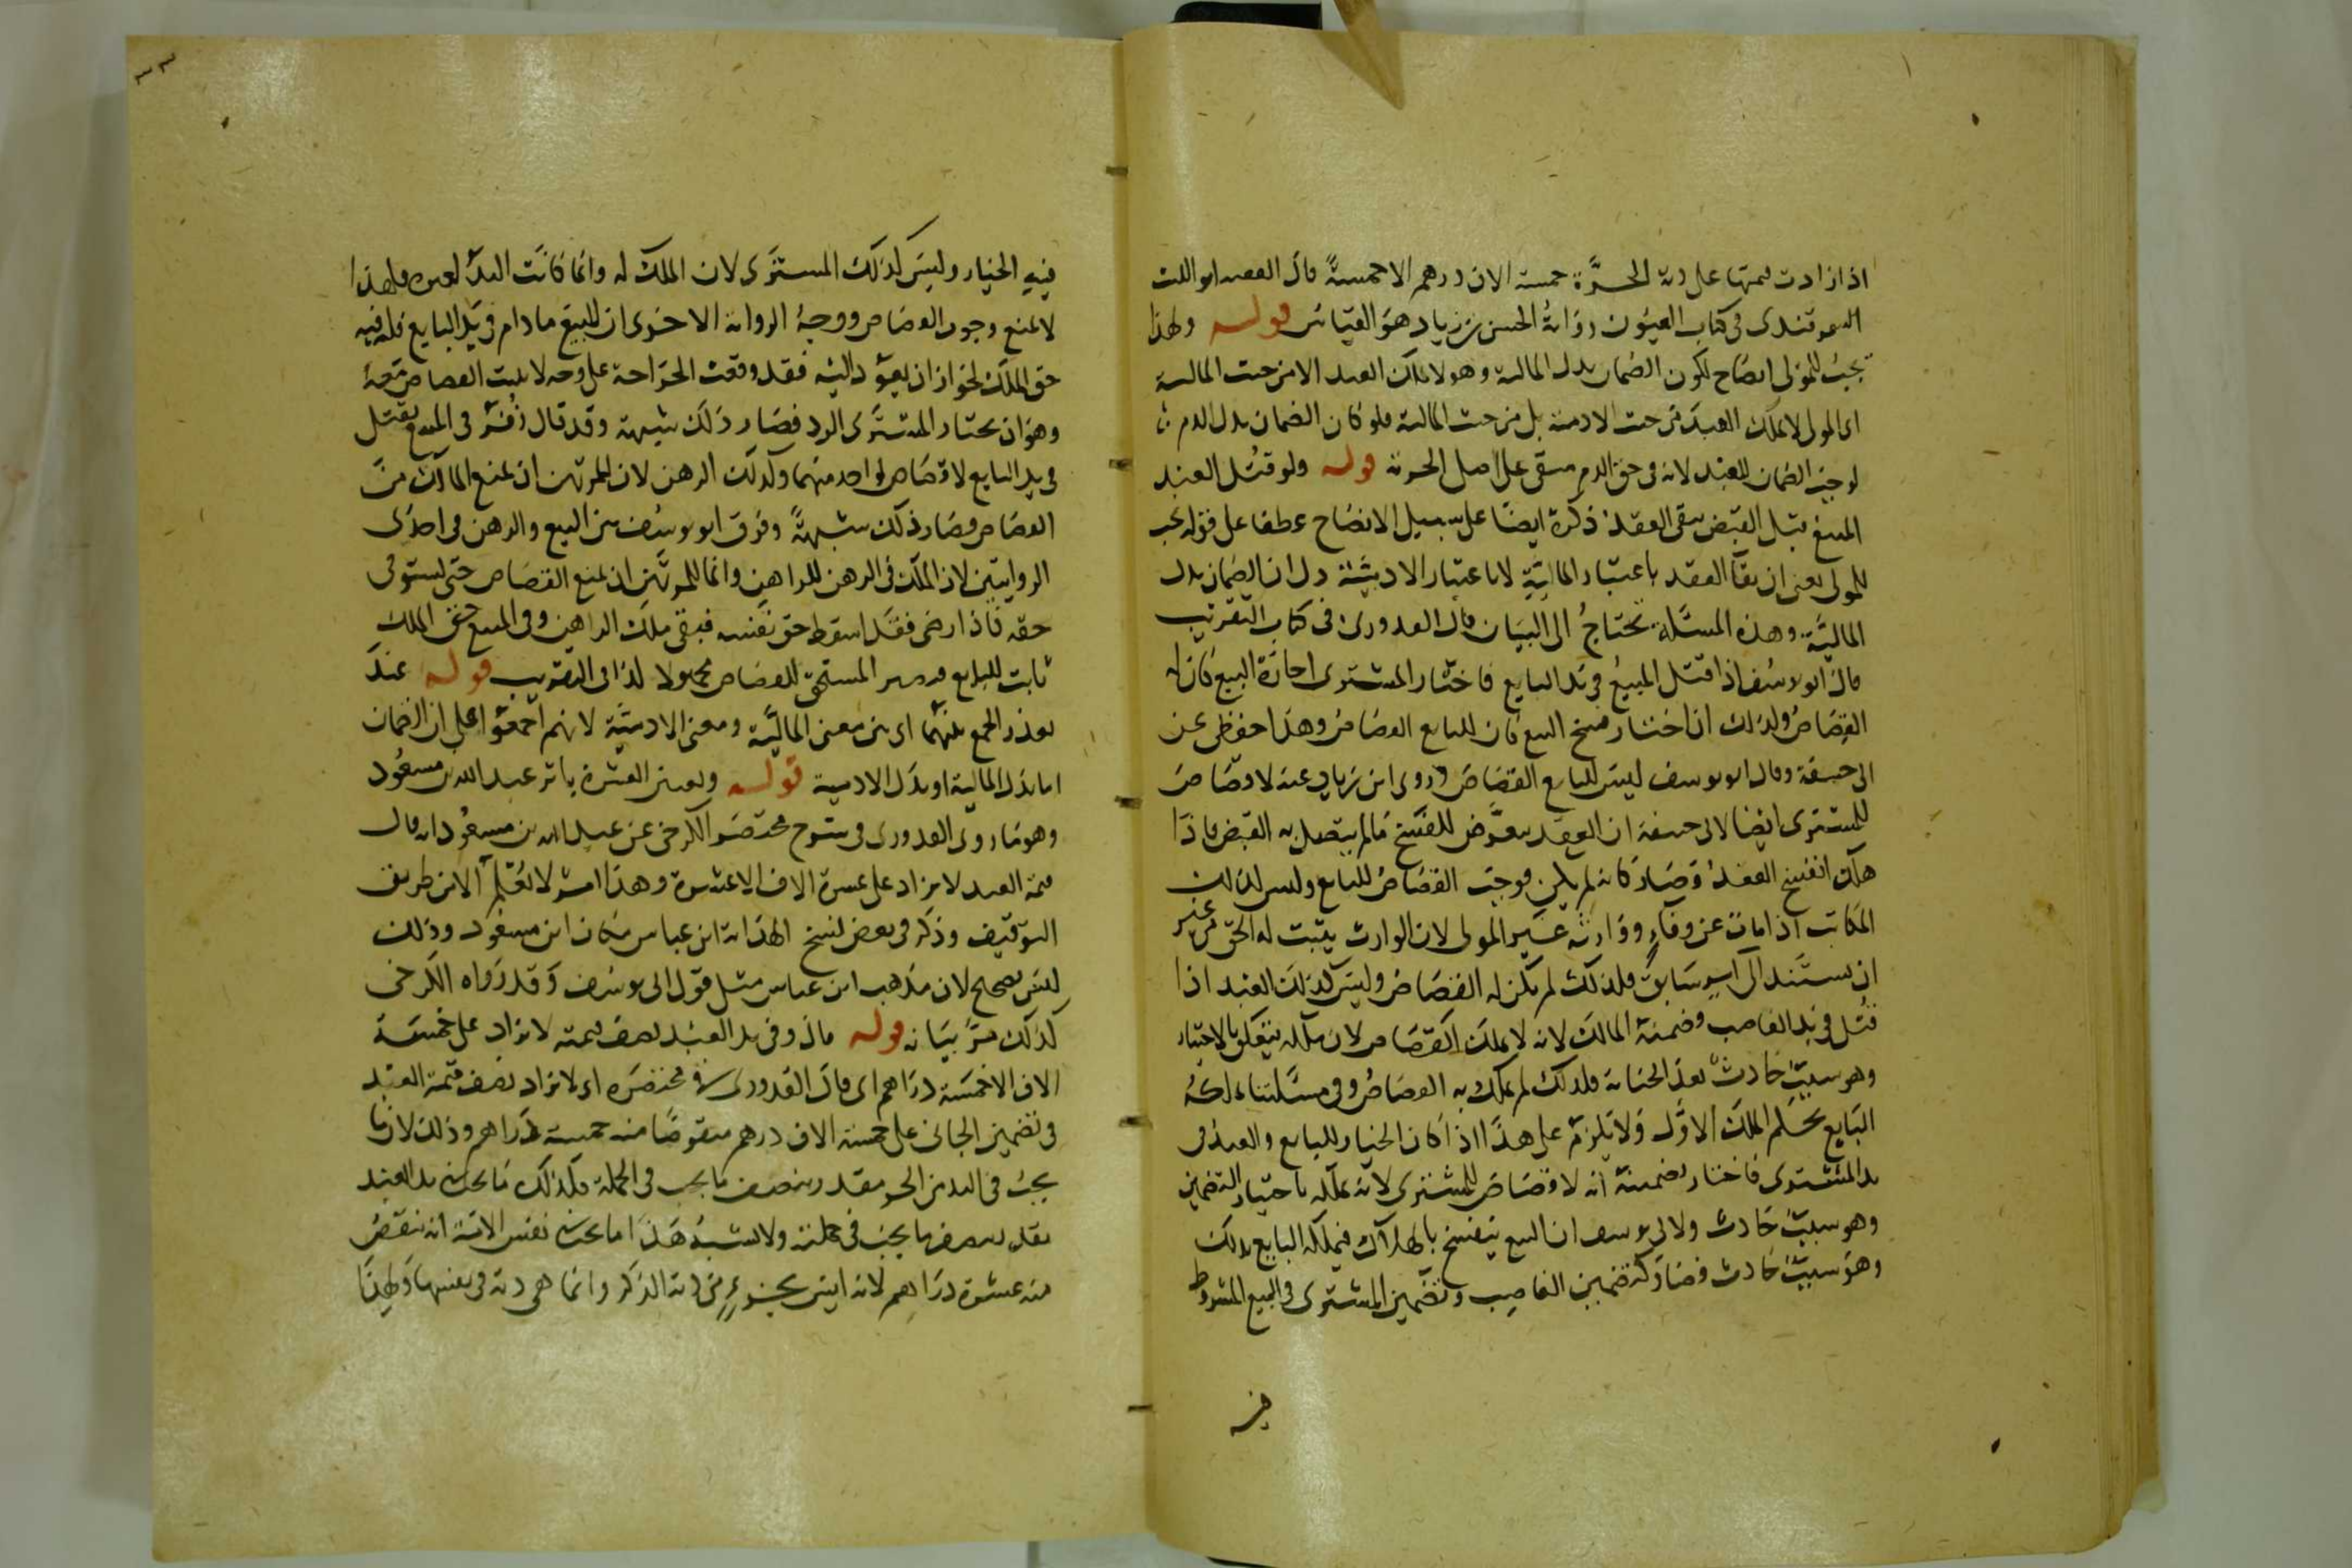 اذا زادت قيمتها على دية الحرة خمسة الاف درهم الا خمسة قال الفقيه ابو الليث
السمرقندى فى كتاب العيون رواية الحسن بن زياد هو القياس قوله ولهذا
يجب للمولى ايضاح لكون الضمان بدل المالية وهو لا يملك العبد الا من حيث المالية
اى المولى لا يملك العبد من حيث الادمية بل من حيث المالية فلو كان الضمان بدل الدم
لوجب الضمان للعبد لانه فى حق الدم مبقى على اصل الحرية قوله ولو قتل العبد
المبيع قبل القبض يبقى العقد ذكره ايضا على سبيل الايضاح عطفا على قوله يجب
للمولى يعنى ان بقآ العقد باعتبار المالية لا باعتبار الادمية دل ان الضمان بدل
المالية وهذه المسئلة تحتاج الى البيان قال القدورى فى كتاب التقريب
قال ابو يوسف اذا قتل المبيع فى يد البايع فاختار المشترى اجازة البيع كان له
القصاص وكذلك اذا اختار فسخ البيع كان للبايع القصاص وهذا حفظى عن
ابى حنيفة وقال ابو يوسف ليس للبايع القصاص وروى ابن زياد عنه لا قصاص
للمشترى ايضا لابى حنيفة ان العقد معرض للفسخ مالم يتصل به القبض فاذا
هلك انفسخ العقد وصار كانه لم يكن فوجب القصاص للبايع وليس كذلك
المكاتب اذا مات عن وفاء ووارثه غير المولى لان الوارث يثبت له الحق من غير
ان يستند الى امر سابق فلذلك لم يكن له القصاص وليس كذلك العبد اذا
قتل فى يد الغاصب وضمنه المالك لانه لا يملك القصاص لان ملكه يتعلق بالاختيار
وهو سبب حادث بعد الجناية فلذلك لم يملك به القصاص وفى مسئلتنا ملكه
البايع بحكم الملك الاول ولا يلزم على هذا اذا كان الخيار للبايع والعبد فى
يد المشترى فاختار تضمينه انه لا قصاص للمشترى لانه يملكه باختيار التضمين
وهو سبب حادث ولابى يوسف ان البيع ينفسخ بالهلاك فيملكه البايع بذلك
وهو سبب حادث فصار كتضمين الغاصب وتضمين المشترى فى البيع المشروط
فيه
فيه الخيار وليس كذلك المشترى لان الملك له وانما كانت اليد لغيره فلهذا
لا يمنع وجوب القصاص ووجه الرواية الاخرى ان المبيع ما دام فى يد البايع فله فيه
حق الملك لجواز ان يعود اليه فقد وقعت الجراحة على وجه لا يثبت القصاص معه
وهو ان يختار المشترى الرد فصار ذلك شبهة وقد قال زفر فى المبيع يقتل
فى يد البايع لا قصاص لواحد منهما وكذلك الرهن لان للمرتهن ان يمنع المالك من
القصاص فصار ذلك شبهة وفرق ابو يوسف بين البيع والرهن فى احدى
الروايتين لان الملك فى الرهن للراهن وانما للمرتهن ان يمنع القصاص حتى يستوفى
حقه فاذا رضى فقد اسقط حق نفسه فبقى ملك الراهن وفى المبيع حق الملك
ثابت للبايع فيصير المستحق للقصاص مجهولا كذا فى التقريب قوله عند
تعذر الجمع بينهما اى بين معنى المالية ومعنى الادمية لانهم اجمعوا على ان الضمان
اما بدل المالية او بدل الادمية قوله وتعين العشرة باثر عبد الله بن مسعود
وهو ما روى القدورى فى شرح مختصر الكرخى عن عبد الله بن مسعود انه قال
قيمة العبد لا يزاد على عشرة الاف الا عشرة وهذا امر لا يعلم الا من طريق
التوقيف وذكر فى بعض نسخ الهداية ابن عباس مكان ابن مسعود وذلك
ليس بصحيح لان مذهب ابن عباس مثل قول ابى يوسف وقد رواه الكرخى
كذلك مر بيانه قوله قال وفى يد العبد نصف قيمته لا يزاد على خمسة
الاف الا خمسة دراهم اى قال القدورى فى مختصره اى لا يزاد نصف قيمة العبد
فى تضمين الجانى على خمسة الاف درهم منقوصا منه خمسة دراهم وذلك لان ما
يجب فى اليد من الحر مقدر بنصف ما يجب فى الجملة فكذلك ما يجب فى يد العبد
يقدر بنصف ما يجب فى جملته ولا يشبه هذا ما يجب فى نفس الامة انه ينقص
منه عشرة دراهم لانه ليس بجزء من دية الذكر وانما هى دية فى نفسها ولهذا